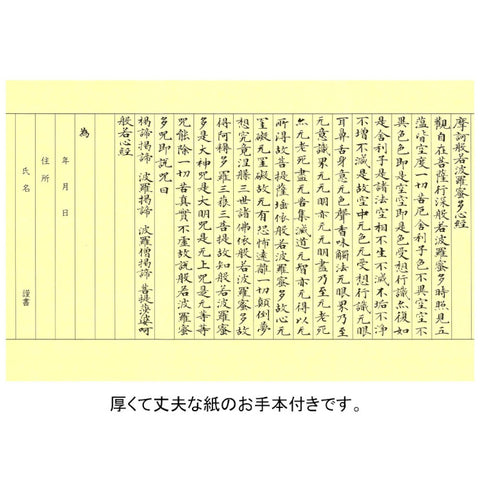 摩訶般若波羅蜜多心経
觀自在菩薩行深般若波羅蜜多時照見五
蘊皆空度一切苦厄舎利子色不異空空不
異色色即是空空即是色受想行識亦復如
是舎利子是諸法空相不生不滅不垢不淨
不增不減是故空中无色无受想行識无眼
耳鼻舌身意无色聲香味觸法无眼界乃至
无意識界无无明亦无无明盡乃至无老死
亦无老死盡无苦集滅道无智亦无得以无
所得故菩提薩埵依般若波羅蜜多故心无
罣礙无罣礙故无有恐怖遠離一切顛倒夢
想究竟涅槃三世諸佛依般若波羅蜜多故
得阿耨多羅三藐三菩提故知般若波羅蜜
多是大神咒是大明咒是无上咒是无等等
咒能除一切苦真實不虛故說般若波羅蜜
多咒即說咒曰
揭諦揭諦 波羅揭諦 波羅僧揭諦 菩提莎婆呵
般若心經
為
年 月 日
住所
氏名 謹書
厚くて丈夫な紙のお手本付きです。